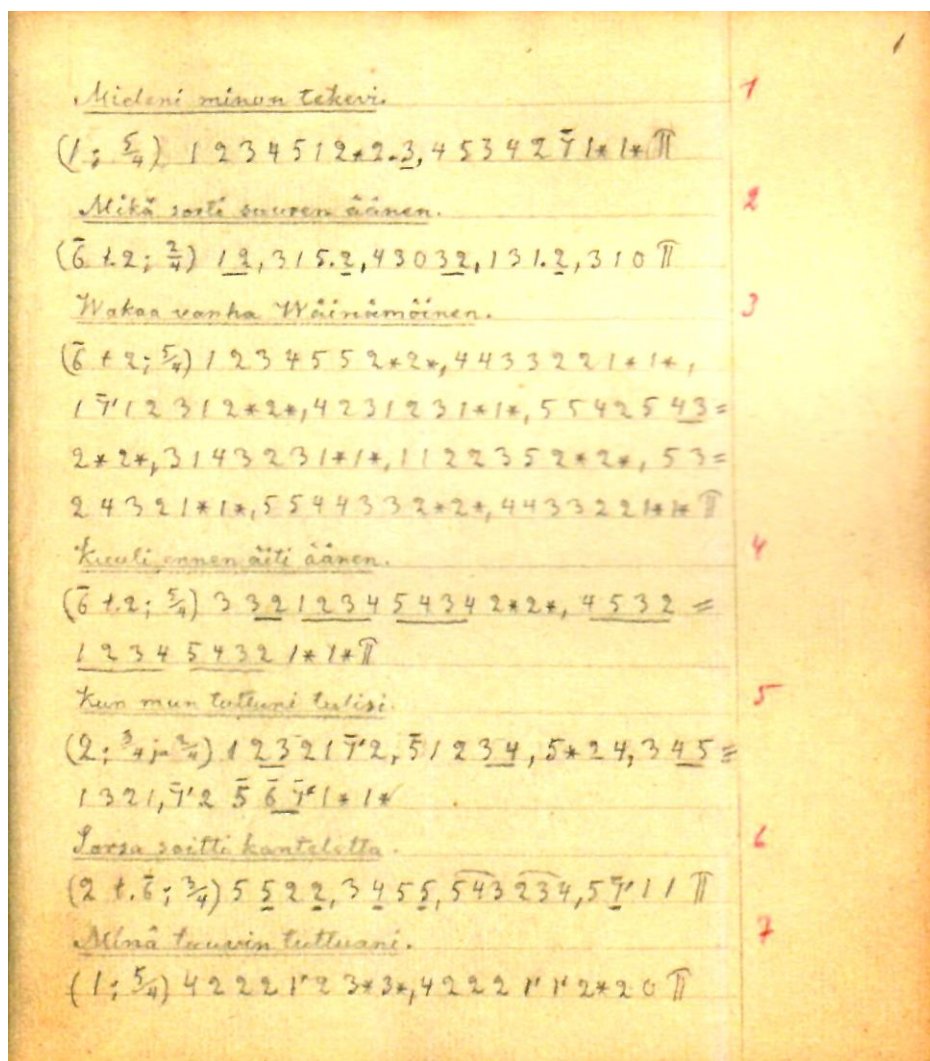 1
Mieleni minun tekevi. 1
(1; 5/4) 1 2 3 4 5 1 2*2.3, 4 5 3 4 2 7̄ 1* 1* π
Mikä sorti suuren äänen. 2
(6̄ t. 2; 2/4) 1 2, 3 1 5.2, 4 3 0 3 2, 1 3 1.2, 3 1 0 π
Wakaa vanha Wäinämöinen. 3
(6̄ t 2; 5/4) 1 2 3 4 5 5 2*2*, 4 4 3 3 2 2 1*1*,
1 7̄' 1 2 3 1 2*2*, 4 2 3 1 2 3 1*1*, 5 5 4 2 5 4 3 =
2*2*, 3 1 4 3 2 3 1*1*, 1 1 2 2 3 5 2*2*, 5 3 =
2 4 3 2 1*1*, 5 5 4 4 3 3 2*2*, 4 4 3 3 2 2 1*1* π
Kuuli ennen äiti äänen. 4
(6̄ t. 2; 5/4) 3 3 2 1 2 3 4 5 4 3 4 2*2*, 4 5 3 2 =
1 2 3 4 5 4 3 2 1*1* π
Kun mun tuttuni tulisi. 5
(2; 3/4 ja 2/4) 1 2 3 2 1 7̄' 2, 5̄ 1 2 3 4, 5* 2 4, 3 4 5 =
1 3 2 1, 7̄' 2 5̄ 6̄ 7̄' 1* 1*
Sorsa soitti kanteletta. 6
(2 t. 6̄; 3/4) 5 5 2 2, 3 4 5 5, 5 4 3 2 3 4, 5 7̄' 1 1 π
Minä tuuvin tuttuani. 7
(1; 5/4) 4 2 2 2 1' 2 3*3*, 4 2 2 2 1' 1' 2* 2 0 π